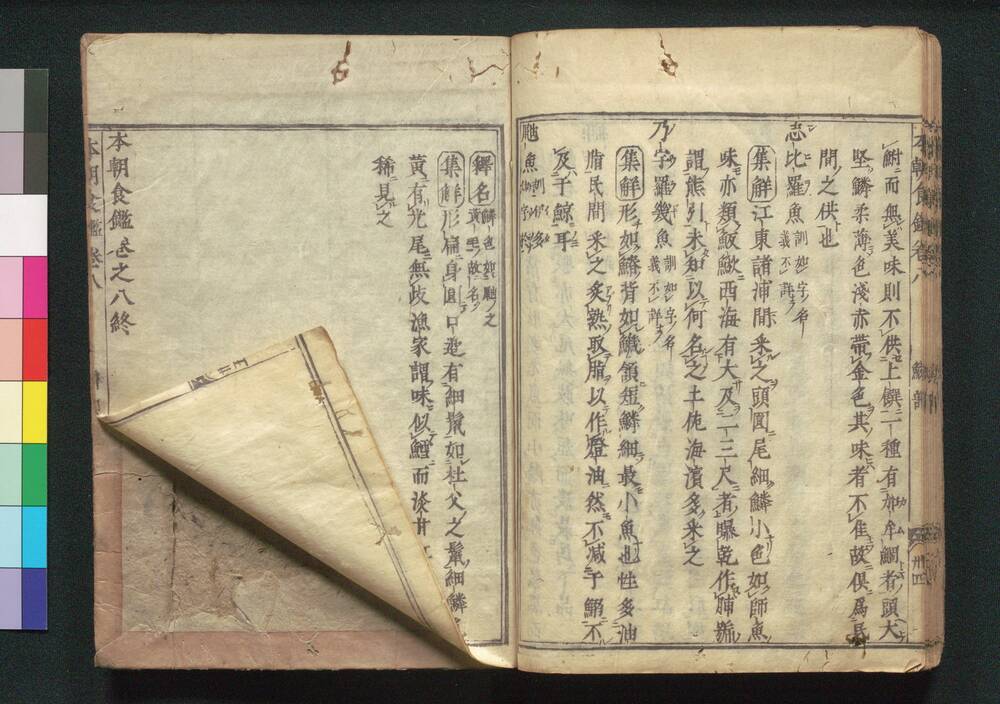 鮒而無美味則不供上饌一種有加牟鯛者頭大
堅鱗柔薄色淺赤帶金色其味者不佳故俱為民
間之供也
志比羅魚訓如字名義不詳
集解江東諸浦間釆之頭圓尾細鱗小色如師魚
味亦類鰤歟西海有大及二三尺者曝乾作脯號
謂熊引未知以何名之土佐海濱多釆之
乃宇羅幾魚訓如字名義不詳
集解形如鱅背如鱵頷短鱗細最小魚也性多油
脂民間釆之炙熟取脂以作燈油然不減于鰯不
及于鯨耳
魚
釋名鱗色如之黃黑故名
集解形扁身圓口有細鬚如杜父之鬚細鱗
黃有光尾無歧漁家謂味似鱈而淡甘
稀見之
本朝食鑑卷之八終
本朝食鑑卷八
本朝食鑑卷八
卅四